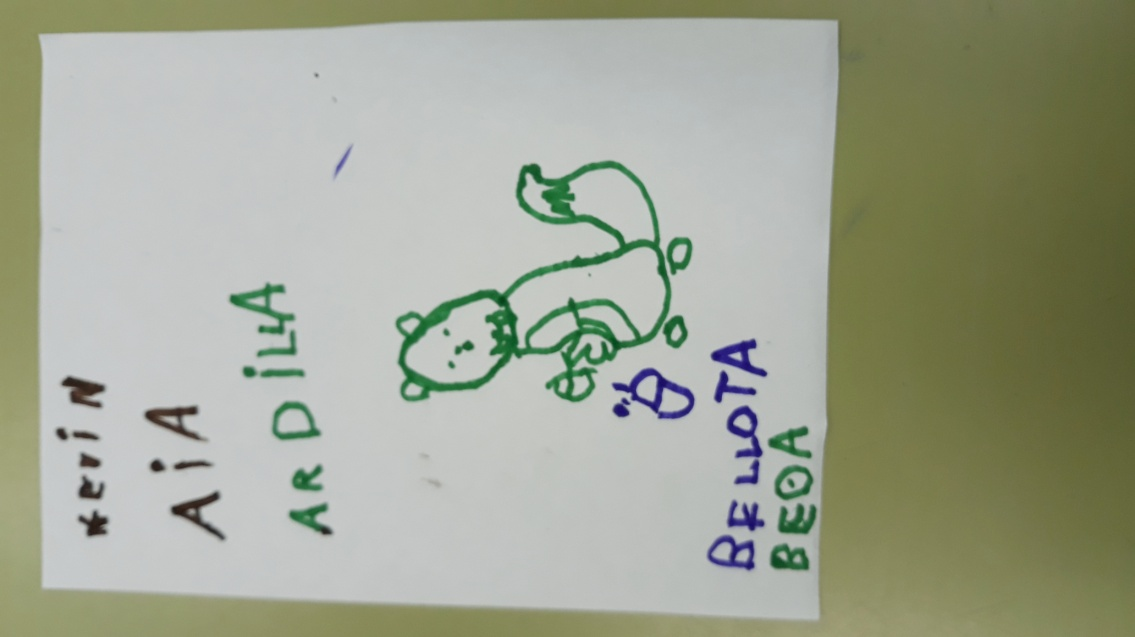 KEViN
AiA
ARDiLLA
BELLOTA
BEOA